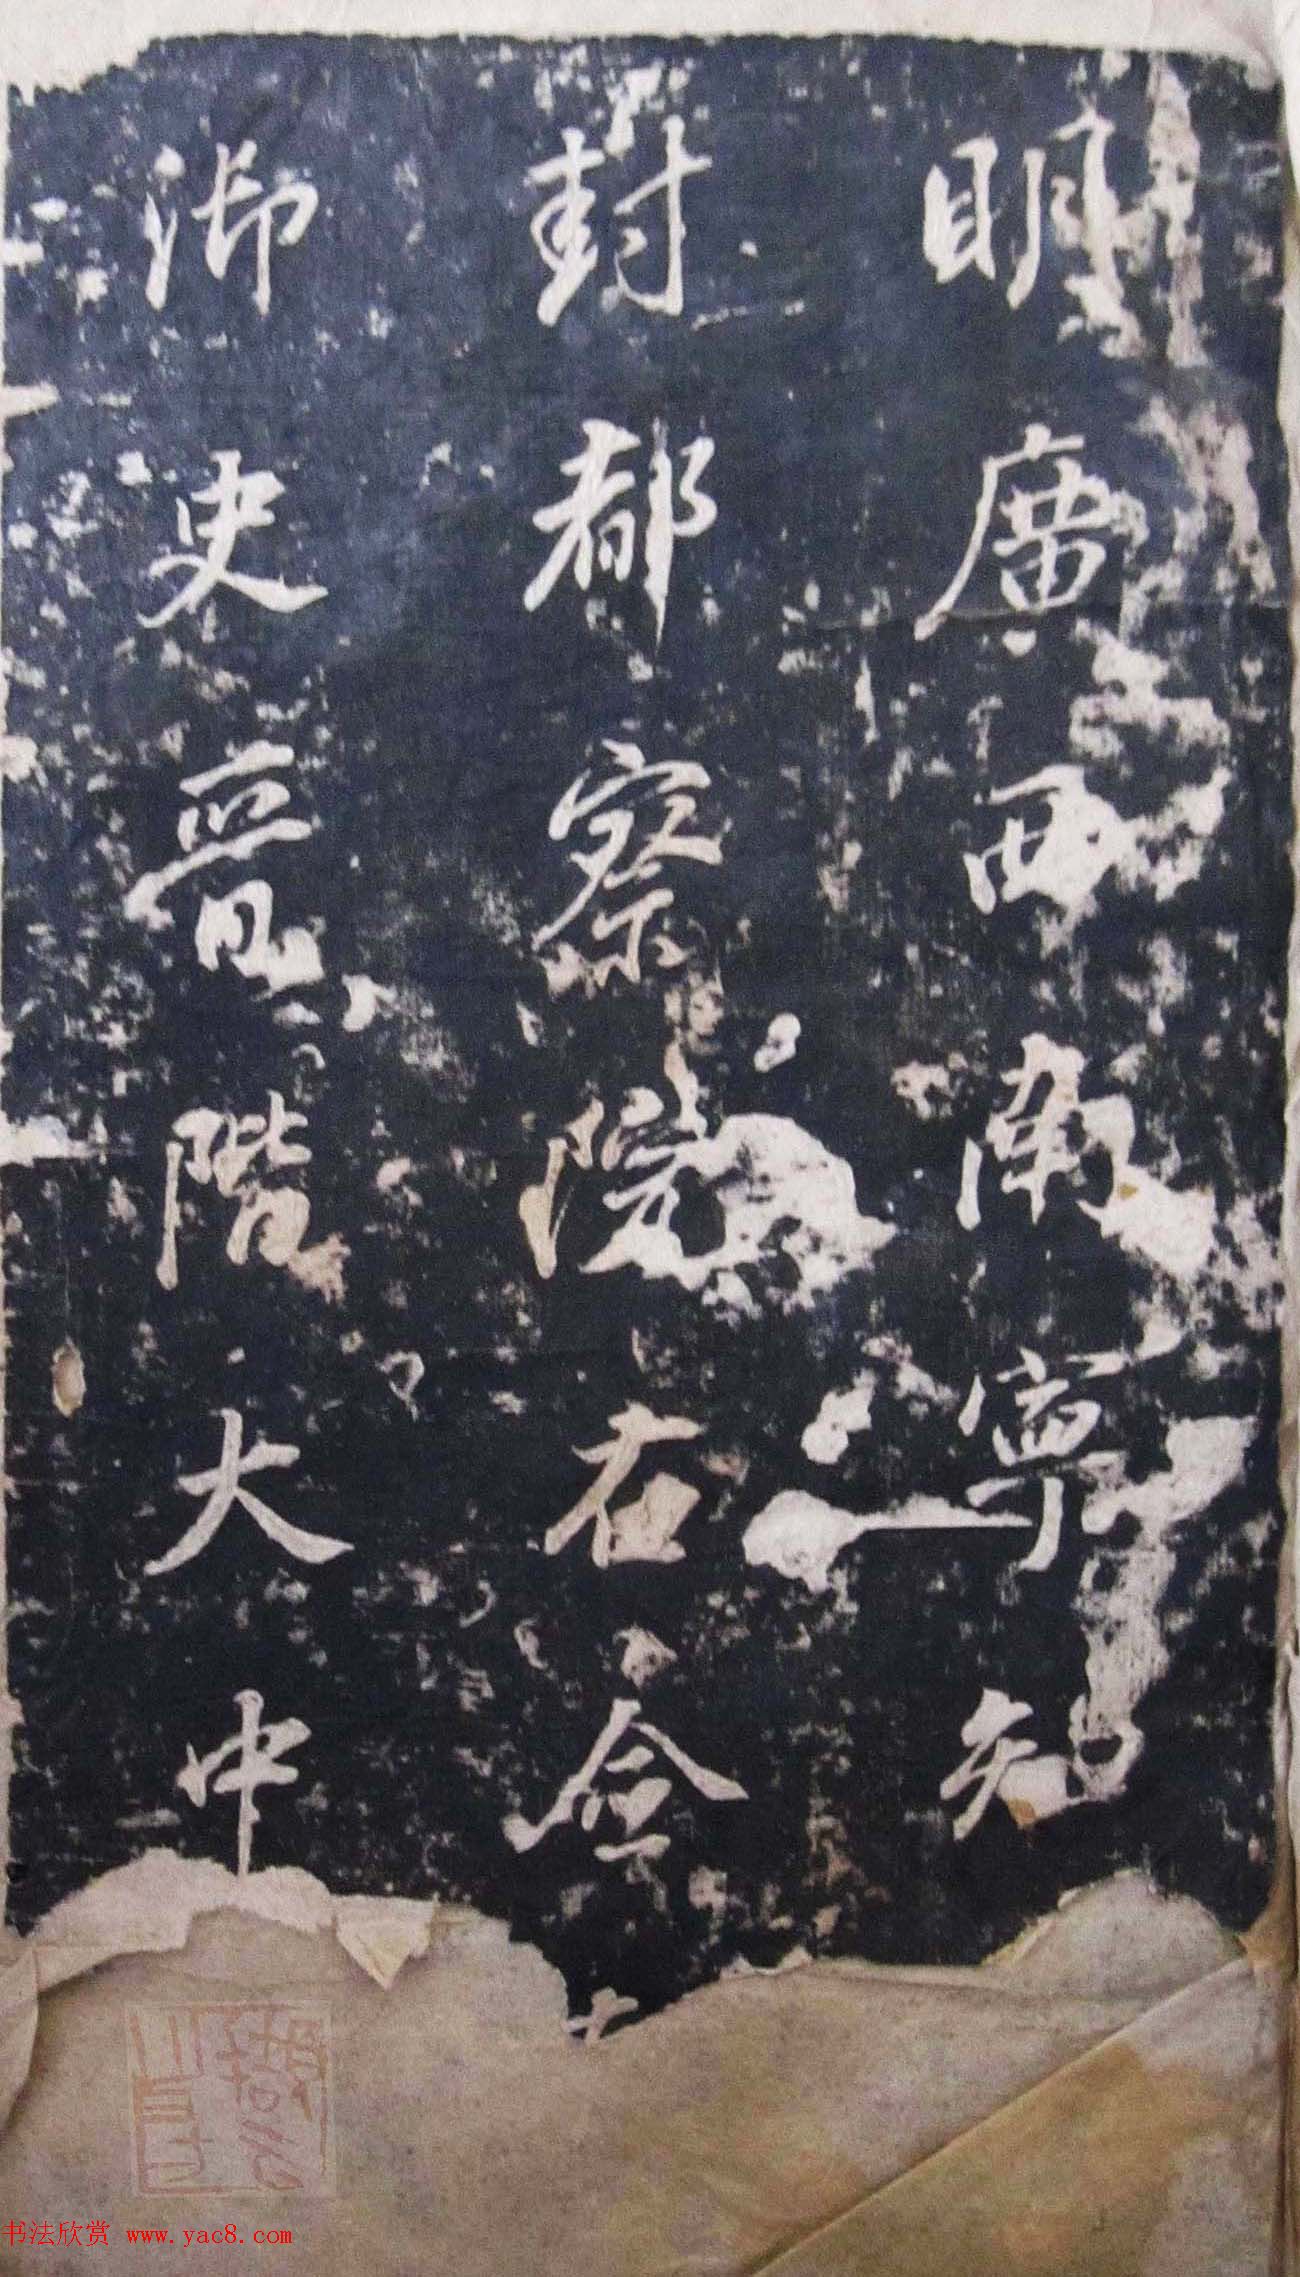 明廣西南寧知
封都察院右僉
御史晉階大中
书法欣赏 www.yac8.com